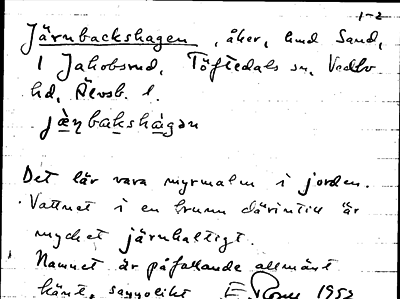 1-2
Järnbackshagen, åker, hmd Sand,
1 Jakobsrud, Töftedals sn, Vedbo
hd, Älvsb. l.
Det lär vara myrmalm i jorden.
Vattnet i en brunn därintill är
mycket järnhaltigt.
Namnet är påfallande allmänt
känt, sannolikt E Rosen 1952